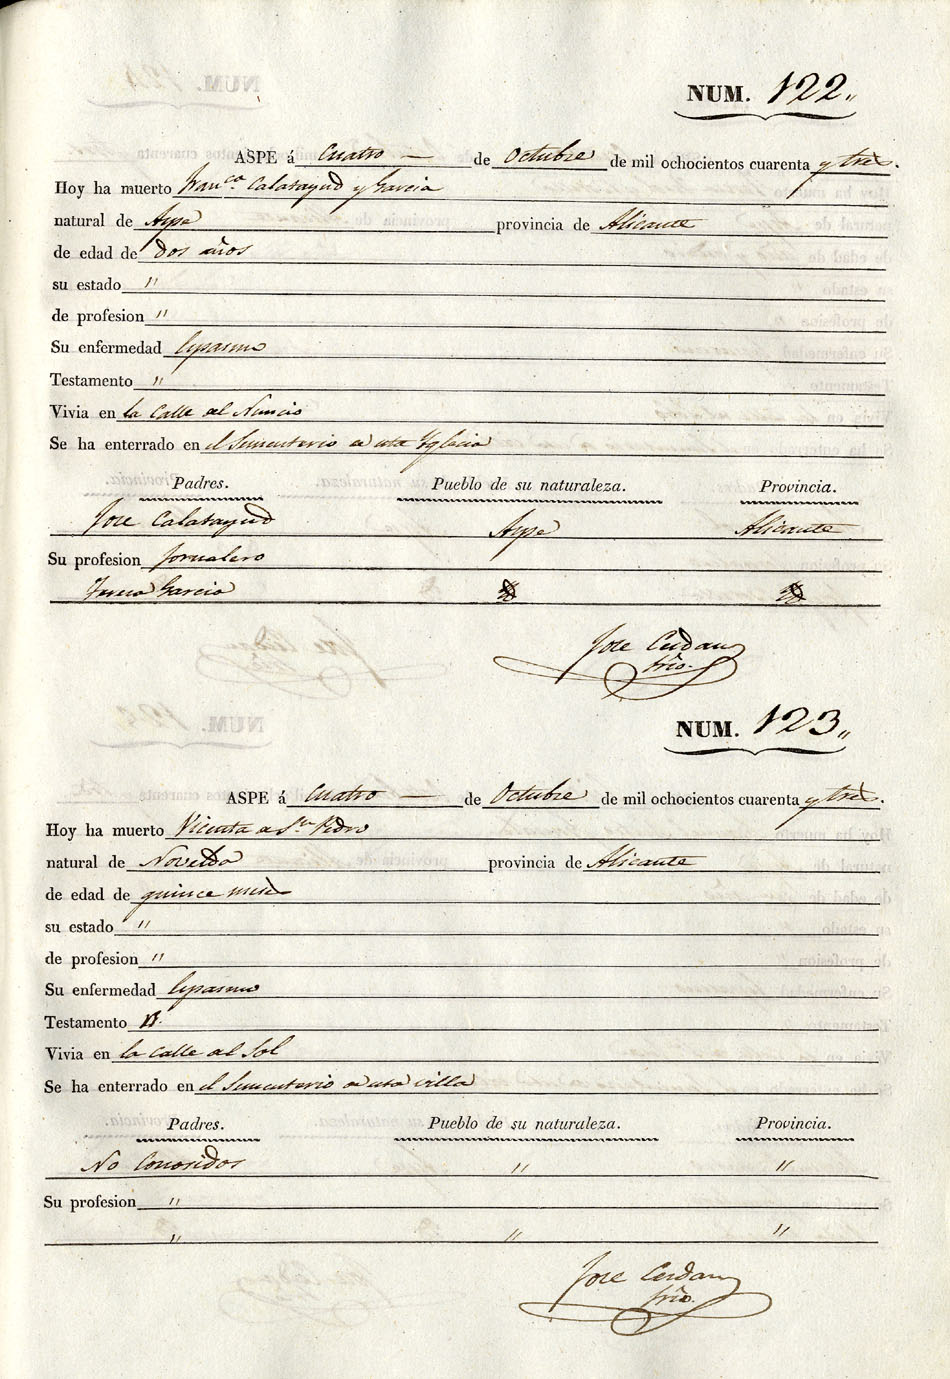 NUM. 122„
ASPE á Cuatro — de Octubre de mil ochocientos cuarenta y tres.
Hoy ha muerto Fran.ca Calatayud y Garcia
natural de Aspe provincia de Alicante
de edad de dos años
su estado "
de profesion "
Su enfermedad Espasmo
Testamento "
Vivia en la Calle del Nuncio
Se ha enterrado en el Sementerio de esta Yglecia
Padres. Pueblo de su naturaleza. Provincia.
Jose Calatayud Aspe Alicante
Su profesion Jornalero
Teresa Garcia
Jose Cerdan
Srio.
NUM. 123„
ASPE á Cuatro — de Octubre de mil ochocientos cuarenta y tres.
Hoy ha muerto Vicenta de Sn. Pedro
natural de Novelda provincia de Alicante
de edad de quince meses
su estado "
de profesion "
Su enfermedad Espasmo
Testamento
Vivia en la Calle del Sol
Se ha enterrado en el Sementerio de esta villa
Padres. Pueblo de su naturaleza. Provincia.
No Conosidos " "
Su profesion "
" " "
Jose Cerdan
Srio.